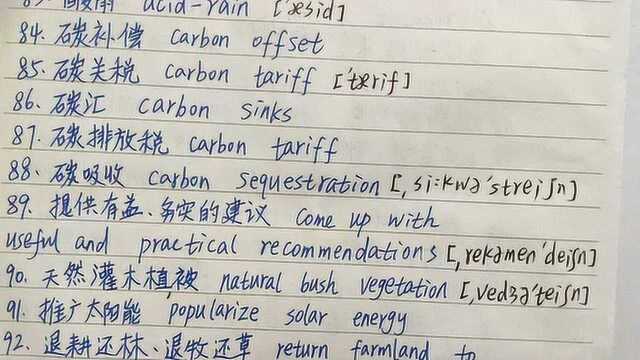 83. 酸雨 acid-rain ['æsid]
84. 碳补偿 carbon offset
85. 碳关税 carbon tariff ['tærif]
86. 碳汇 carbon sinks
87. 碳排放税 carbon tariff
88. 碳吸收 carbon sequestration [,si:kwə'streiʃn]
89. 提供有益、务实的建议 come up with
useful and practical recommendations [,rekəmen'deiʃn]
90. 天然灌木植被 natural bush vegetation [,vedʒə'teiʃn]
91. 推广太阳能 popularize solar energy
92. 退耕还林、退牧还草 return farmland to